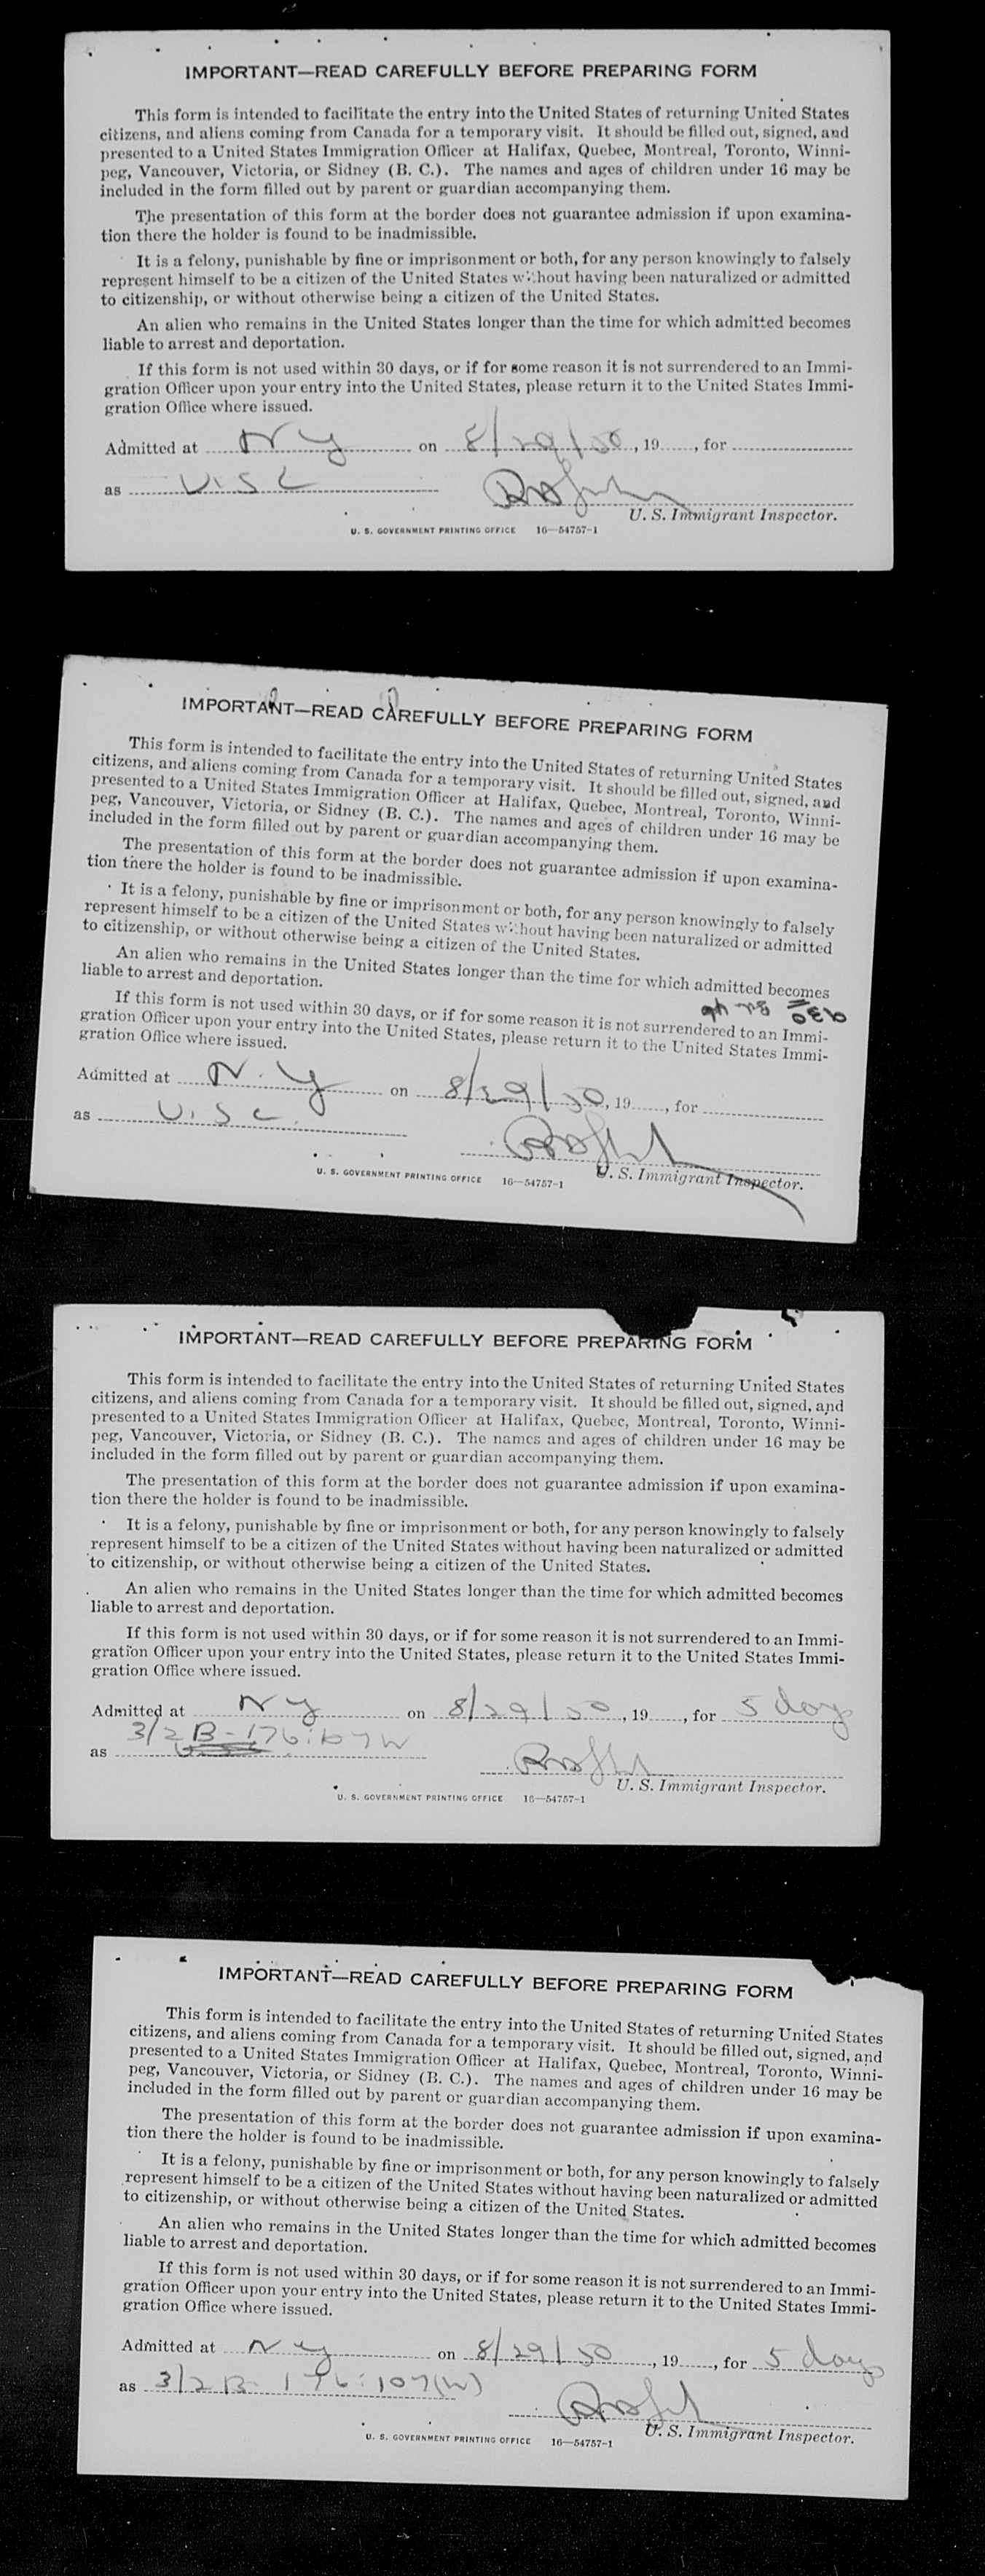 IMPORTANT—READ CAREFULLY BEFORE PREPARING FORM
This form is intended to facilitate the entry into the United States of returning United States
citizens, and aliens coming from Canada for a temporary visit. It should be filled out, signed, and
presented to a United States Immigration Officer at Halifax, Quebec, Montreal, Toronto, Winni-
peg, Vancouver, Victoria, or Sidney (B. C.). The names and ages of children under 16 may be
included in the form filled out by parent or guardian accompanying them.
The presentation of this form at the border does not guarantee admission if upon examina-
tion there the holder is found to be inadmissible.
It is a felony, punishable by fine or imprisonment or both, for any person knowingly to falsely
represent himself to be a citizen of the United States without having been naturalized or admitted
to citizenship, or without otherwise being a citizen of the United States.
An alien who remains in the United States longer than the time for which admitted becomes
liable to arrest and deportation.
If this form is not used within 30 days, or if for some reason it is not surrendered to an Immi-
gration Officer upon your entry into the United States, please return it to the United States Immi-
gration Office where issued.
Admitted at NY on 8/29/50, 19, for
as U.S C
U. S. Immigrant Inspector.
U. S. GOVERNMENT PRINTING OFFICE 16—54757-1
IMPORTANT—READ CAREFULLY BEFORE PREPARING FORM
This form is intended to facilitate the entry into the United States of returning United States
citizens, and aliens coming from Canada for a temporary visit. It should be filled out, signed, and
presented to a United States Immigration Officer at Halifax, Quebec, Montreal, Toronto, Winni-
peg, Vancouver, Victoria, or Sidney (B. C.). The names and ages of children under 16 may be
included in the form filled out by parent or guardian accompanying them.
The presentation of this form at the border does not guarantee admission if upon examina-
tion there the holder is found to be inadmissible.
It is a felony, punishable by fine or imprisonment or both, for any person knowingly to falsely
represent himself to be a citizen of the United States without having been naturalized or admitted
to citizenship, or without otherwise being a citizen of the United States.
An alien who remains in the United States longer than the time for which admitted becomes
liable to arrest and deportation.
If this form is not used within 30 days, or if for some reason it is not surrendered to an Immi-
gration Officer upon your entry into the United States, please return it to the United States Immi-
gration Office where issued.
Admitted at N.Y on 8/29/50, 19, for
as U.S C.
U. S. Immigrant Inspector.
U. S. GOVERNMENT PRINTING OFFICE 16—54757-1
IMPORTANT—READ CAREFULLY BEFORE PREPARING FORM
This form is intended to facilitate the entry into the United States of returning United States
citizens, and aliens coming from Canada for a temporary visit. It should be filled out, signed, and
presented to a United States Immigration Officer at Halifax, Quebec, Montreal, Toronto, Winni-
peg, Vancouver, Victoria, or Sidney (B. C.). The names and ages of children under 16 may be
included in the form filled out by parent or guardian accompanying them.
The presentation of this form at the border does not guarantee admission if upon examina-
tion there the holder is found to be inadmissible.
It is a felony, punishable by fine or imprisonment or both, for any person knowingly to falsely
represent himself to be a citizen of the United States without having been naturalized or admitted
to citizenship, or without otherwise being a citizen of the United States.
An alien who remains in the United States longer than the time for which admitted becomes
liable to arrest and deportation.
If this form is not used within 30 days, or if for some reason it is not surrendered to an Immi-
gration Officer upon your entry into the United States, please return it to the United States Immi-
gration Office where issued.
Admitted at NY on 8/29/50, 19, for 5 days
as 3/2 B-176:107W
U. S. Immigrant Inspector.
U. S. GOVERNMENT PRINTING OFFICE 16—54757-1
IMPORTANT—READ CAREFULLY BEFORE PREPARING FORM
This form is intended to facilitate the entry into the United States of returning United States
citizens, and aliens coming from Canada for a temporary visit. It should be filled out, signed, and
presented to a United States Immigration Officer at Halifax, Quebec, Montreal, Toronto, Winni-
peg, Vancouver, Victoria, or Sidney (B. C.). The names and ages of children under 16 may be
included in the form filled out by parent or guardian accompanying them.
The presentation of this form at the border does not guarantee admission if upon examina-
tion there the holder is found to be inadmissible.
It is a felony, punishable by fine or imprisonment or both, for any person knowingly to falsely
represent himself to be a citizen of the United States without having been naturalized or admitted
to citizenship, or without otherwise being a citizen of the United States.
An alien who remains in the United States longer than the time for which admitted becomes
liable to arrest and deportation.
If this form is not used within 30 days, or if for some reason it is not surrendered to an Immi-
gration Officer upon your entry into the United States, please return it to the United States Immi-
gration Office where issued.
Admitted at NY on 8/29/50, 19, for 5 days
as 3/2 B- 176:107(W)
U. S. Immigrant Inspector.
U. S. GOVERNMENT PRINTING OFFICE 16—54757-1